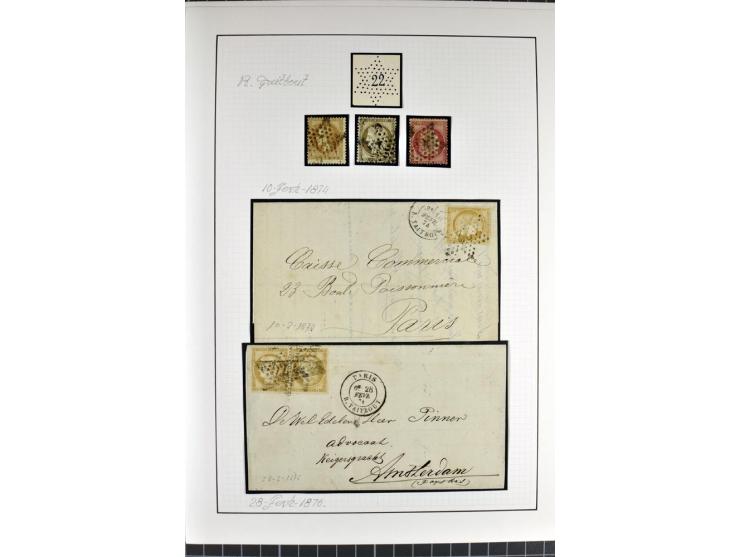 R. Taitbout
22
10 Fevr-1874
FEVR
74
R. TAITBOUT
Caisse Commerciale
23 Boul. Poissonnière
Paris
10-2-1874
PARIS
28
FEVR
R. TAITBOUT
De Wel Edelen Heer Pinner
advocaat
Keizersgracht
Amsterdam
(Pays Bas)
28-2-1876
28 Fevr-1876.